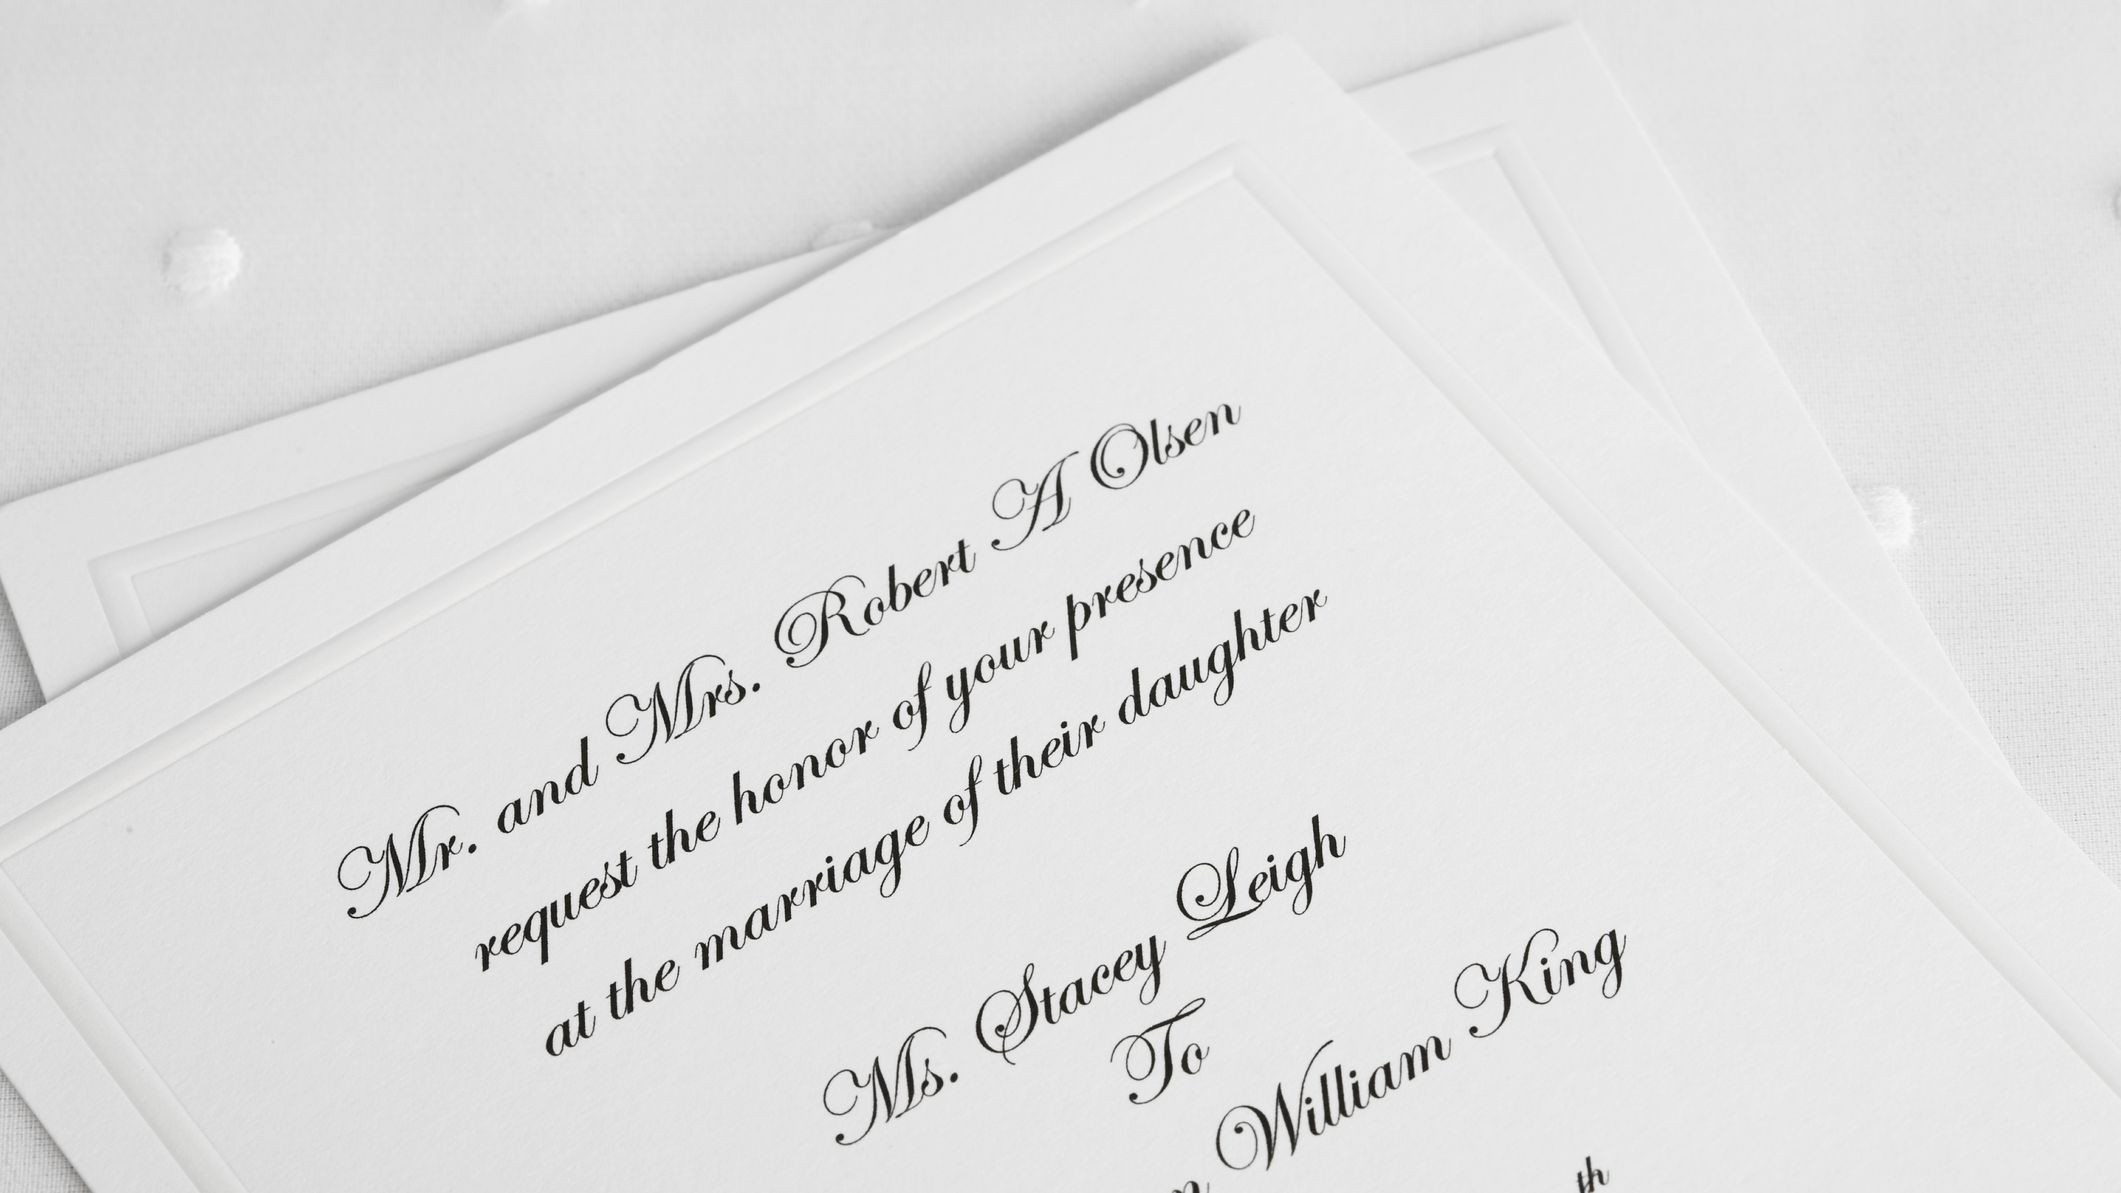 Mr. and Mrs. Robert A Olsen
request the honor of your presence
at the marriage of their daughter
Ms. Stacey Leigh
To
William King
th